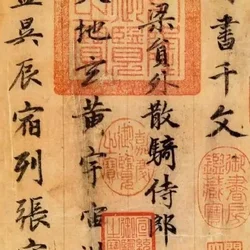 書千文
梁員外散騎侍郎
地玄黃宇宙
盈昃辰宿列張